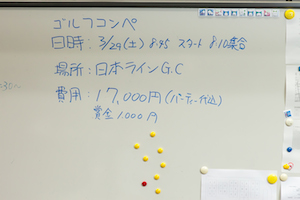 ゴルフコンペ
日時: 3/29(土) 8:45 スタート 8:10集合
場所: 日本ラインG.C
費用: 17,000円(パーティー代込)
賞金 1,000円